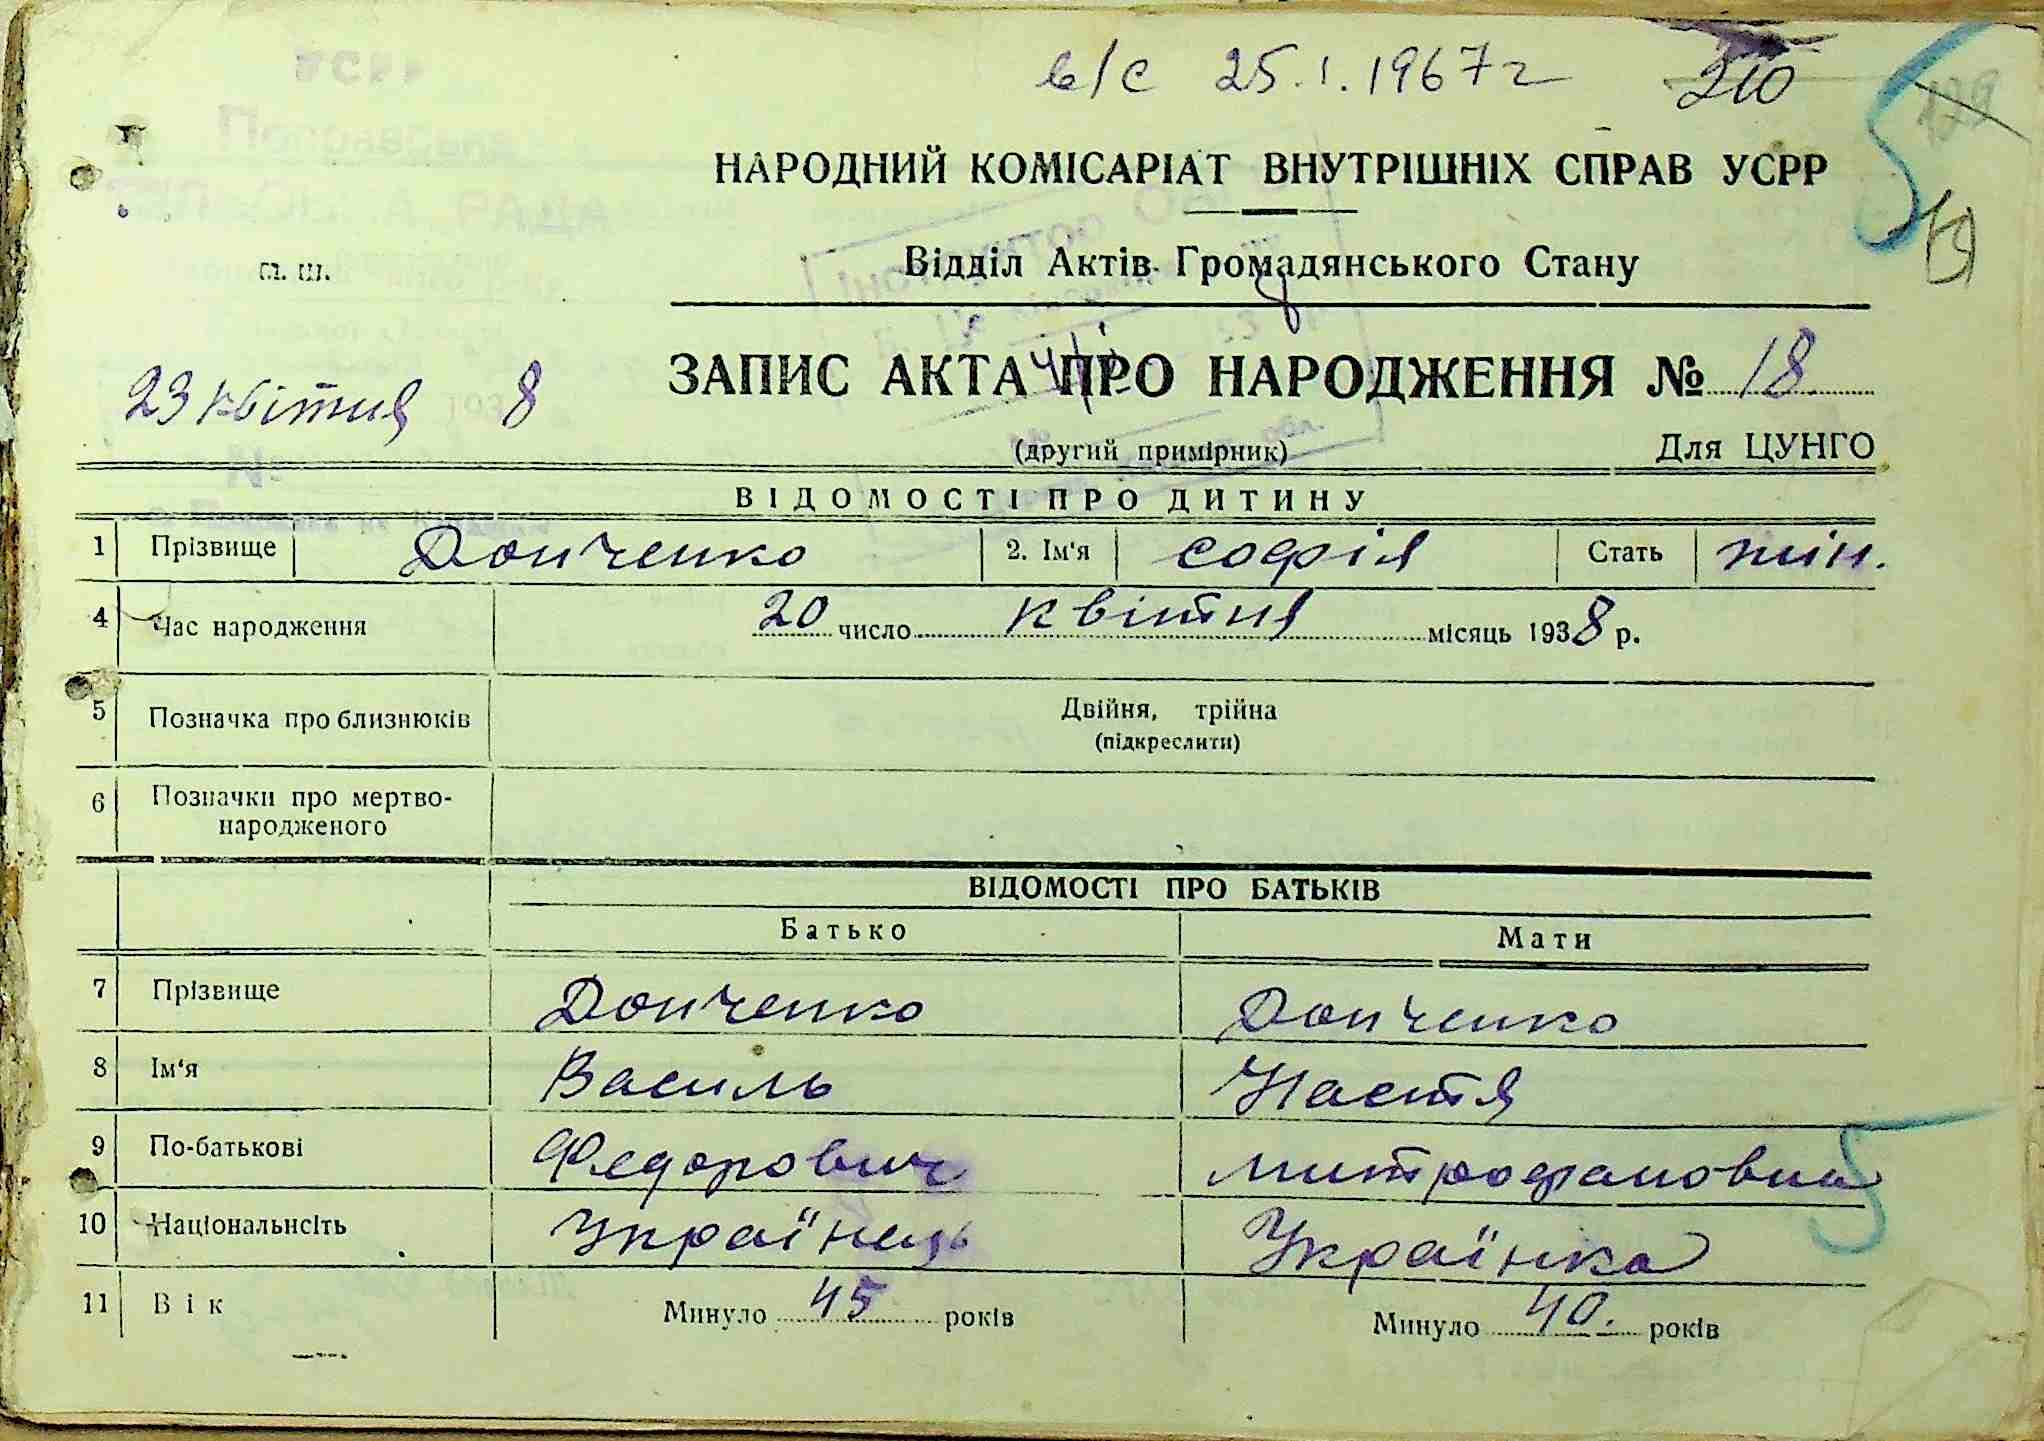 в/с 25.1.1967 г 210
129
НАРОДНИЙ КОМІСАРІАТ ВНУТРІШНІХ СПРАВ УСРР
Відділ Актів Громадянського Стану
м. ш.
ЗАПИС АКТА ПРО НАРОДЖЕННЯ № 18
23 квітня 1938
(другий примірник) Для ЦУНГО
ВІДОМОСТІ ПРО ДИТИНУ
1 Прізвище Донченко 2. Ім'я Софія Стать жін.
4 Час народження 20 число квітня місяць 1938 р.
5 Позначка про близнюків Двійня, трійна
(підкреслити)
6 Позначки про мертво-
народженого
ВІДОМОСТІ ПРО БАТЬКІВ
Батько Мати
7 Прізвище Донченко Донченко
8 Ім'я Василь Настя
9 По-батькові Федорович Митрофановна
10 Національнсіть Українець Українка
11 Вік Минуло 45 років Минуло 40. років